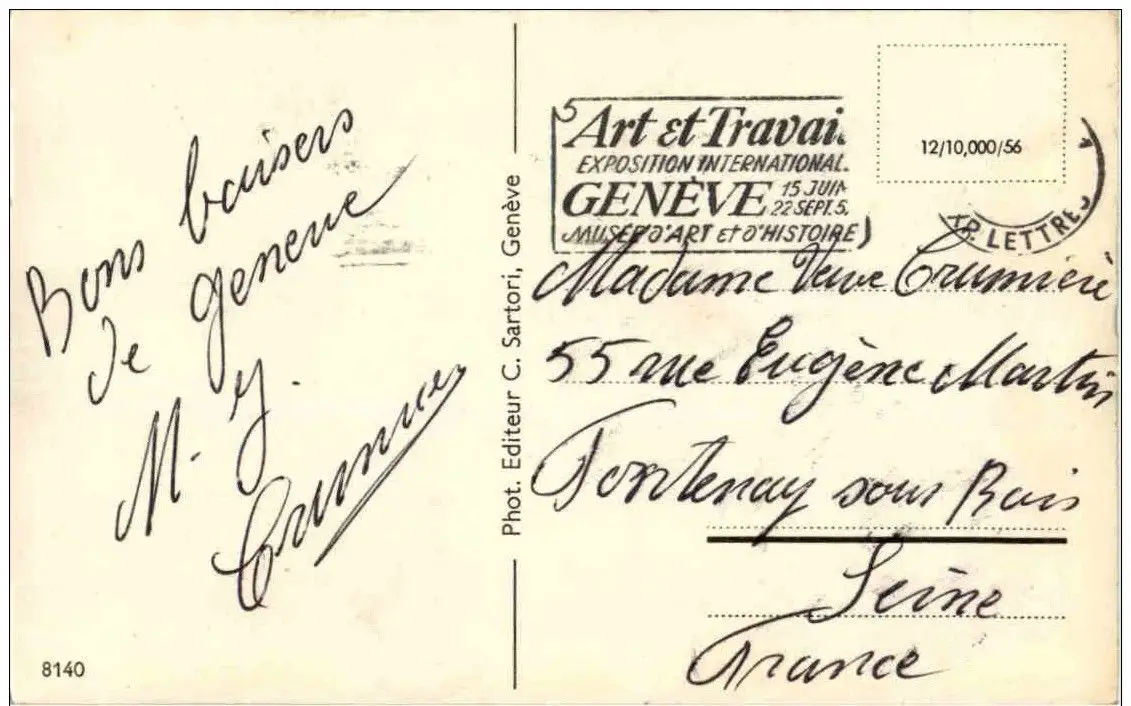 Bons baisers
de Geneve
M. Y.
Crumiere
Phot. Editeur C. Sartori, Genève
8140
5
Art et Travai
EXPOSITION INTERNATIONAL
GENÈVE 15 JUIN
22 SEPT. 5
MUSÉE D'ART et D'HISTOIRE
12/10,000/56
XP. LETTRES
Madame Veuve Crumière
55 rue Eugène Martin
Fontenay sous Bois
Seine
France